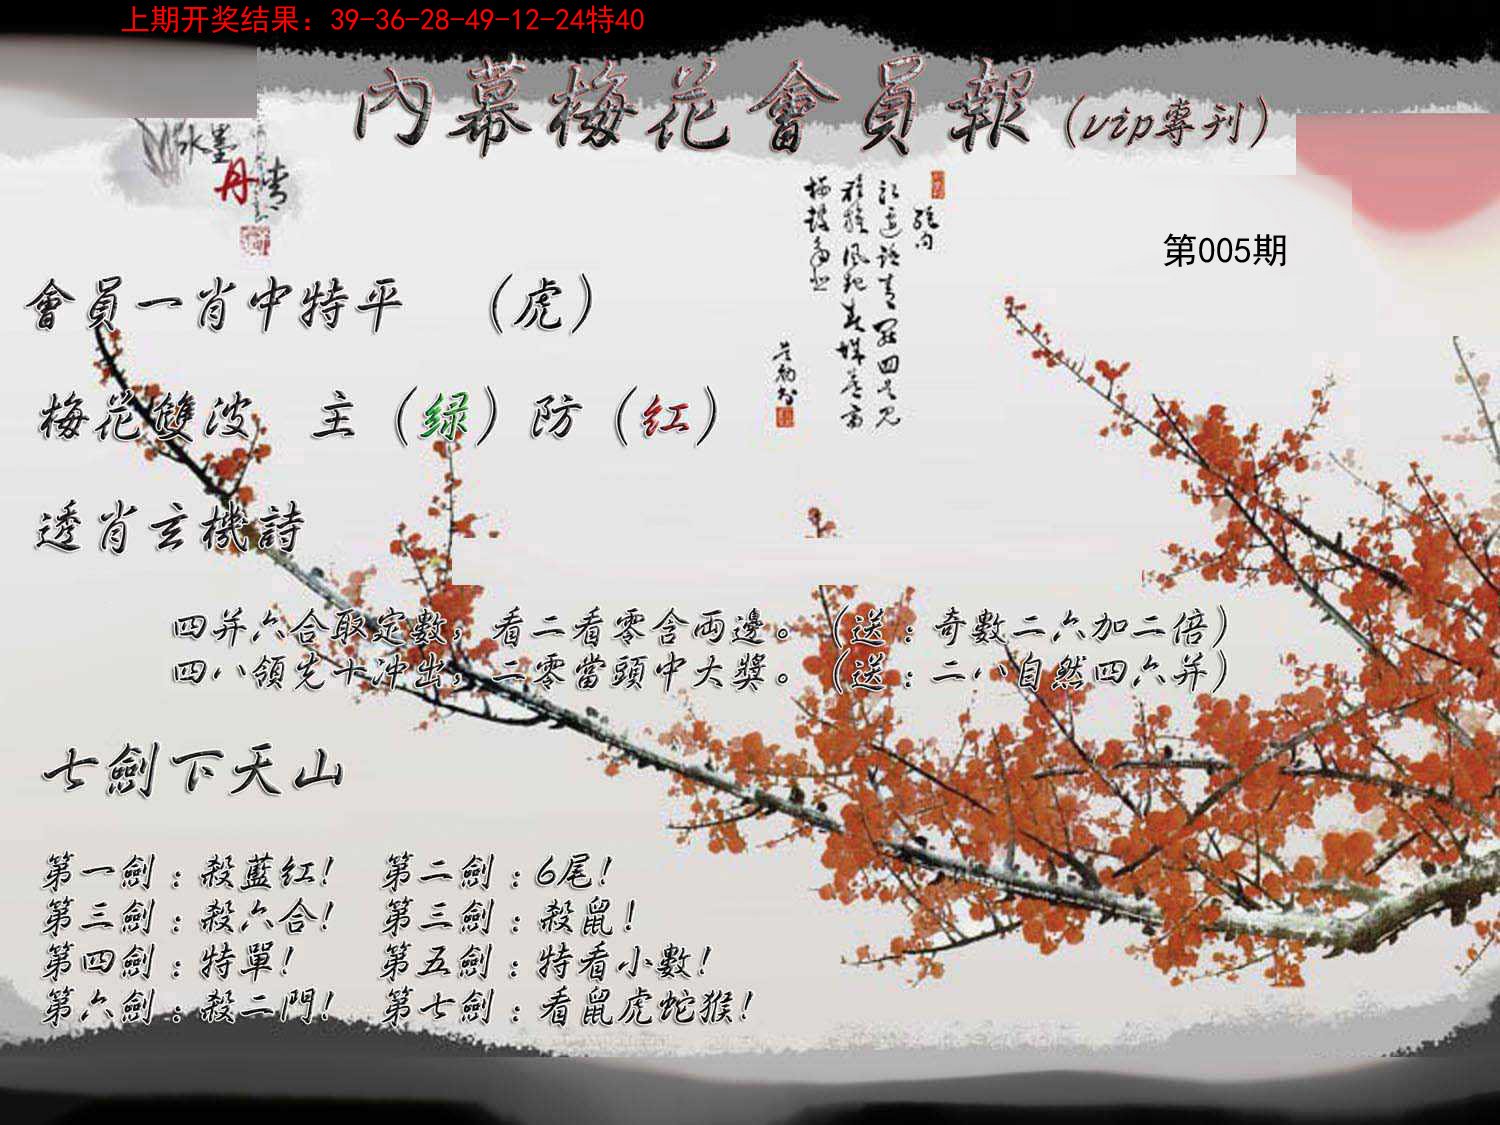 上期开奖结果：39-36-28-49-12-24特40
內幕梅花會員報（vip專刊）
水墨
丹青
第005期
會員一肖中特平　（虎）
梅花雙波　主（绿）防（红）
透肖玄機詩
四并六合取定數，看二看零含両邊。（送：奇數二六加二倍）
四八領先十冲出，二零當頭中大獎。（送：二八自然四六并）
七劍下天山
第一劍：殺藍红！　第二劍：6尾！
第三劍：殺六合！　第三劍：殺鼠！
第四劍：特單！　第五劍：特看小數！
第六劍：殺二門！　第七劍：看鼠虎蛇猴！